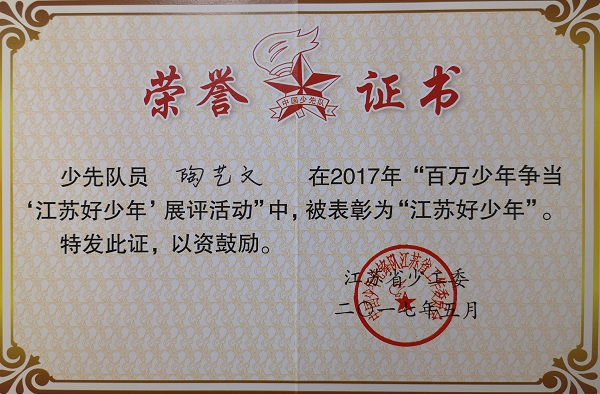 荣誉证书
中国少先队
少先队员 陶艺文 在2017年“百万少年争当
‘江苏好少年’展评活动”中，被表彰为“江苏好少年”。
特发此证，以资鼓励。
江苏省少工委
二〇一七年五月